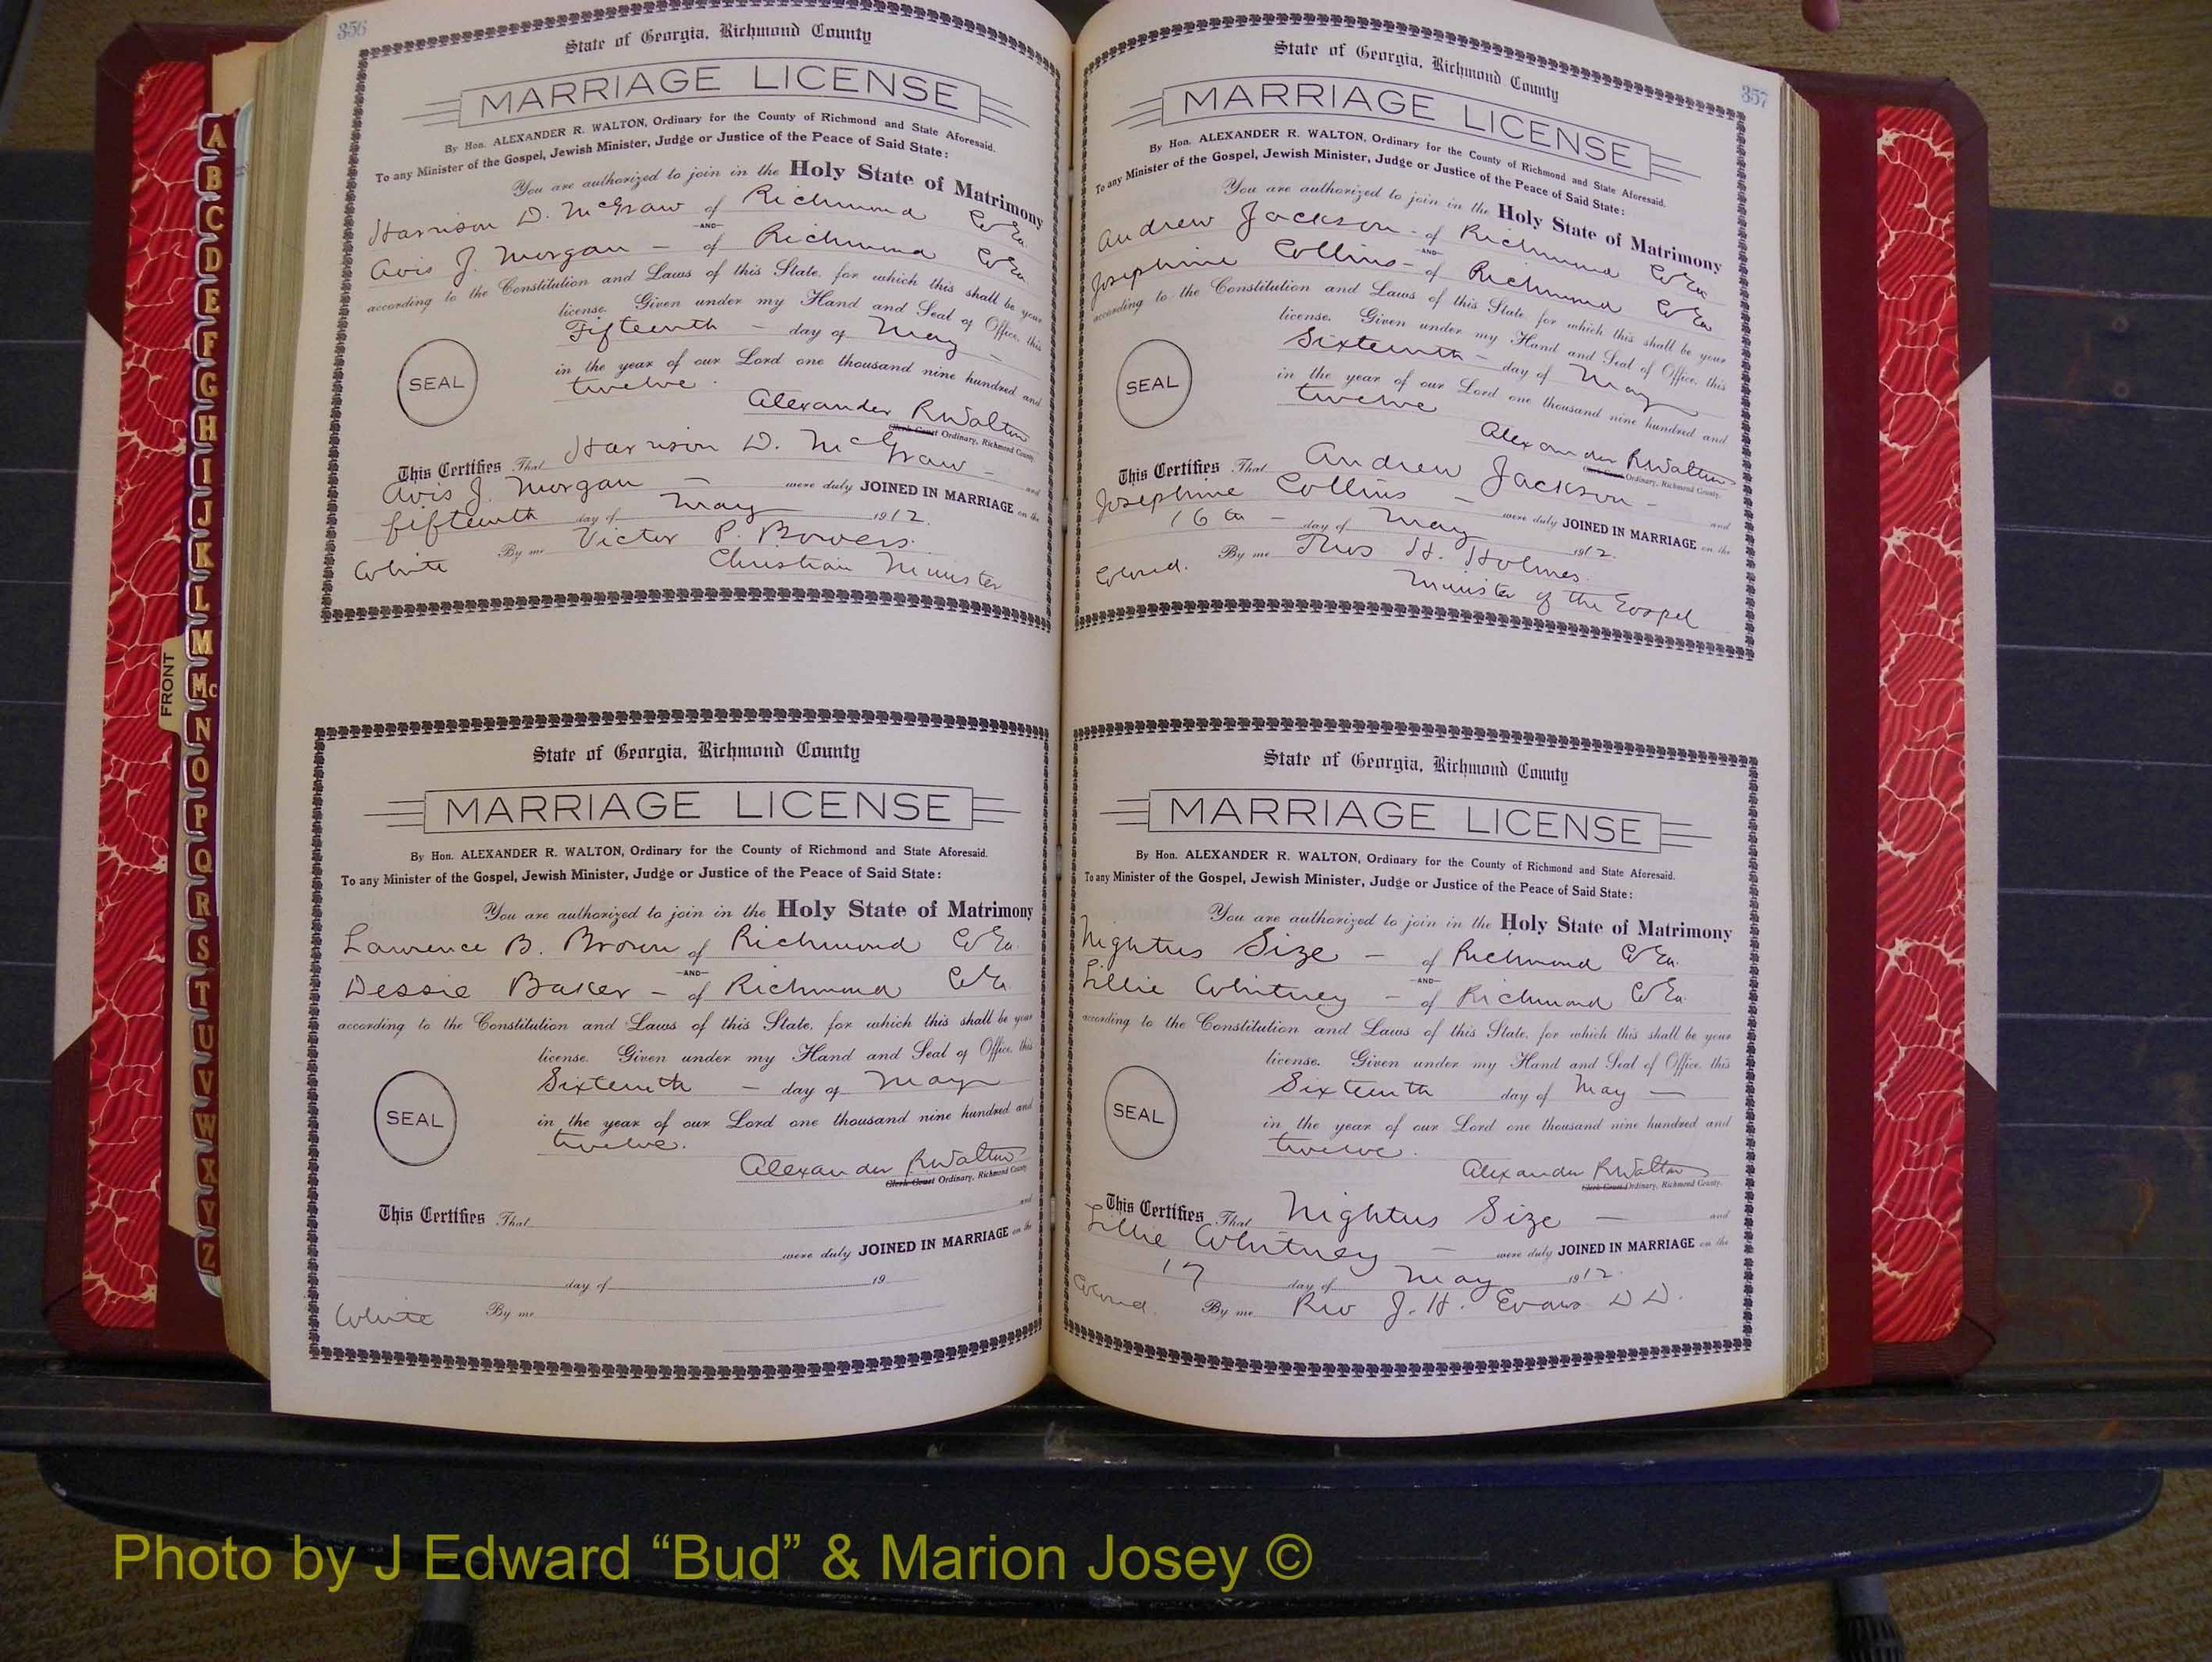 356
State of Georgia, Richmond County
MARRIAGE LICENSE
By Hon. ALEXANDER R. WALTON, Ordinary for the County of Richmond and State Aforesaid.
To any Minister of the Gospel, Jewish Minister, Judge or Justice of the Peace of Said State:
You are authorized to join in the Holy State of Matrimony
Harrison D. McGraw of Richmond Co Ga.
—AND—
Avis J. Morgan — of Richmond Co Ga.
according to the Constitution and Laws of this State, for which this shall be your
license. Given under my Hand and Seal of Office, this
Fifteenth — day of May —
in the year of our Lord one thousand nine hundred and
twelve.
SEAL
Alexander R Walton
Clerk Court Ordinary, Richmond County
This Certifies That Harrison D. McGraw — and
Avis J. Morgan — were duly JOINED IN MARRIAGE on the
fifteenth day of May 1912.
White By me Victor P. Bowers.
Christian Minister
State of Georgia, Richmond County
MARRIAGE LICENSE
By Hon. ALEXANDER R. WALTON, Ordinary for the County of Richmond and State Aforesaid.
To any Minister of the Gospel, Jewish Minister, Judge or Justice of the Peace of Said State:
You are authorized to join in the Holy State of Matrimony
Lawrence B. Brown of Richmond Co Ga.
—AND—
Dessie Baker — of Richmond Co Ga.
according to the Constitution and Laws of this State, for which this shall be your
license. Given under my Hand and Seal of Office, this
Sixteenth — day of May
in the year of our Lord one thousand nine hundred and
twelve.
SEAL
Alexander R Walton
Clerk Court Ordinary, Richmond County
This Certifies That and
were duly JOINED IN MARRIAGE on the
day of 19
White By me
357
State of Georgia, Richmond County
MARRIAGE LICENSE
By Hon. ALEXANDER R. WALTON, Ordinary for the County of Richmond and State Aforesaid.
To any Minister of the Gospel, Jewish Minister, Judge or Justice of the Peace of Said State:
You are authorized to join in the Holy State of Matrimony
Andrew Jackson - of Richmond Co Ga
—AND—
Josephine Collins - of Richmond Co Ga
according to the Constitution and Laws of this State, for which this shall be your
license. Given under my Hand and Seal of Office, this
Sixteenth — day of May
in the year of our Lord one thousand nine hundred and
twelve
SEAL
Alexander R Walton
Clerk Court Ordinary, Richmond County.
This Certifies That Andrew Jackson - and
Josephine Collins — were duly JOINED IN MARRIAGE on the
16th — day of May 1912.
Colored. By me Thos H. Holmes.
Minister of the Gospel
State of Georgia, Richmond County
MARRIAGE LICENSE
By Hon. ALEXANDER R. WALTON, Ordinary for the County of Richmond and State Aforesaid.
To any Minister of the Gospel, Jewish Minister, Judge or Justice of the Peace of Said State:
You are authorized to join in the Holy State of Matrimony
Nightus Size — of Richmond Co Ga.
—AND—
Lillie Whitney — of Richmond Co Ga.
according to the Constitution and Laws of this State, for which this shall be your
license. Given under my Hand and Seal of Office, this
Sixteenth day of May —
in the year of our Lord one thousand nine hundred and
twelve.
SEAL
Alexander R Walton
Clerk Court Ordinary, Richmond County.
This Certifies That Nightus Size — and
Lillie Whitney — were duly JOINED IN MARRIAGE on the
17 day of May 1912.
Colored. By me Rev J. H. Evans D D.
FRONT
A
B
C
D
E
F
G
H
I
J
K
L
M
Mc
N
O
P
Q
R
S
T
U
V
W
X
Y
Z
Photo by J Edward “Bud” & Marion Josey ©